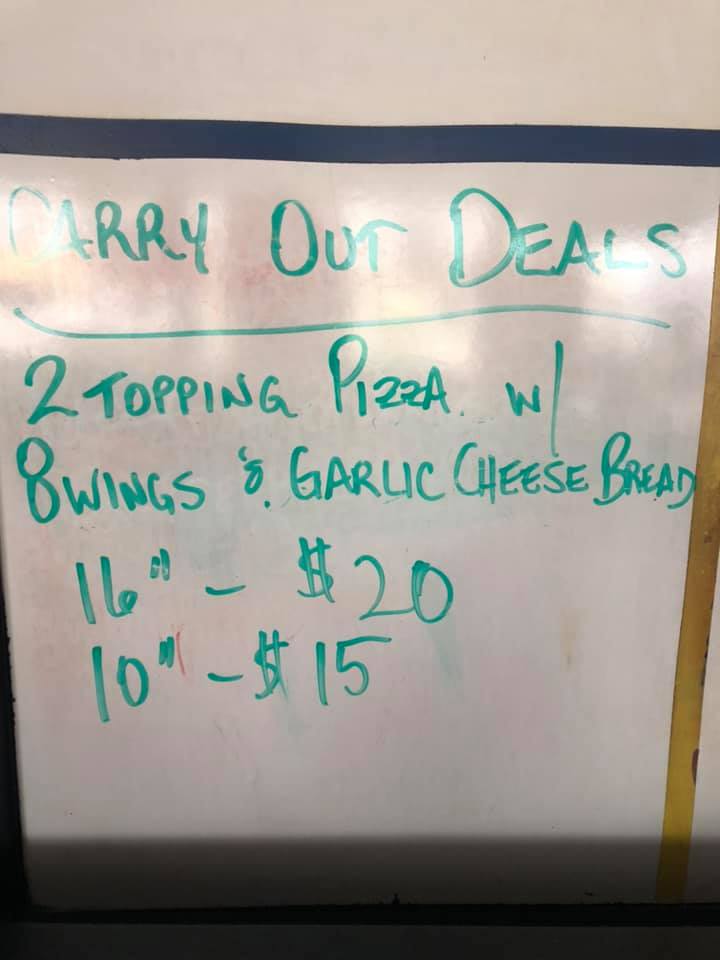 CARRY OUT DEALS
2 TOPPING PIZZA w/
8 WINGS & GARLIC CHEESE BREAD
16" - $20
10" - $15